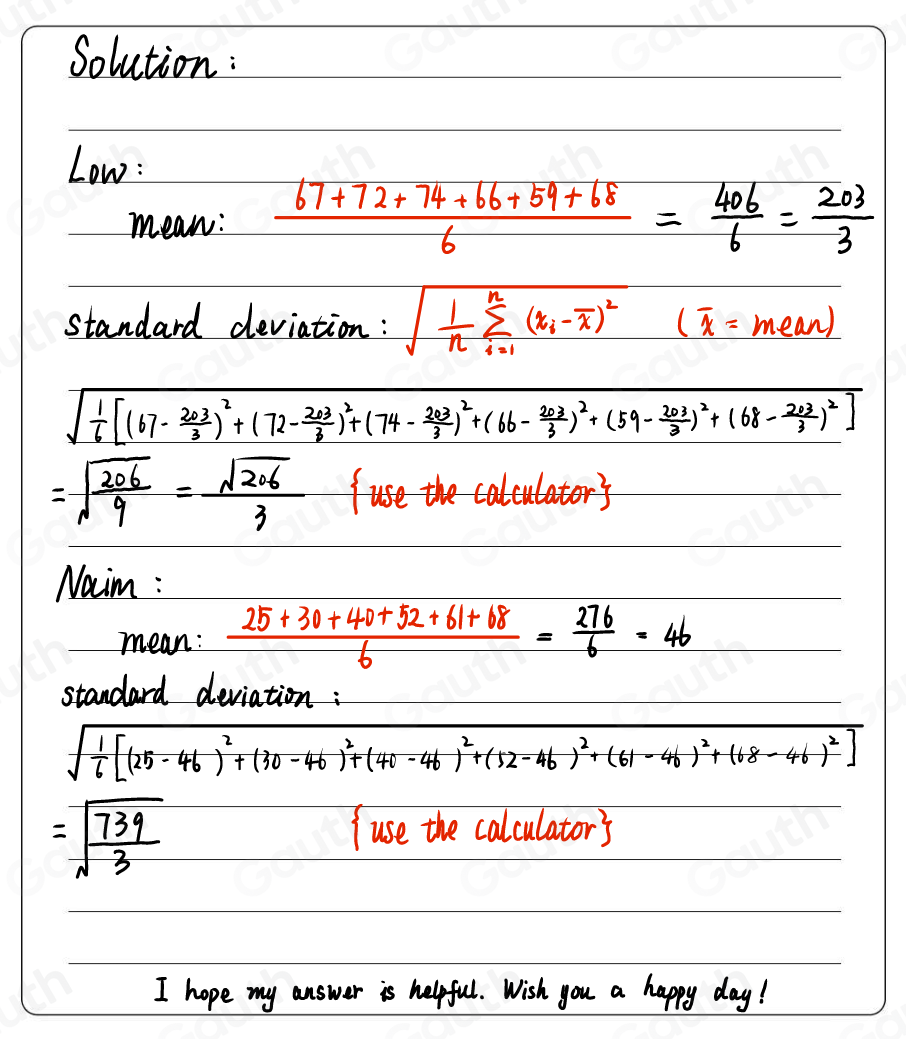 Solution:
Low:
mean: (67+72+74+66+59+68)/6 = 406/6 = 203/3
standard deviation: √(1/n ∑_{i=1}^{n} (x_i - x̄)²) (x̄ = mean)
√(1/6 [(67 - 203/3)² + (72 - 203/3)² + (74 - 203/3)² + (66 - 203/3)² + (59 - 203/3)² + (68 - 203/3)²])
= √(206/9) = √206/3 {use the calculator}
Naim:
mean: (25+30+40+52+61+68)/6 = 276/6 = 46
standard deviation:
√(1/6 [(25 - 46)² + (30 - 46)² + (40 - 46)² + (52 - 46)² + (61 - 46)² + (68 - 46)²])
= √(739/3) {use the calculator}
I hope my answer is helpful. Wish you a happy day!